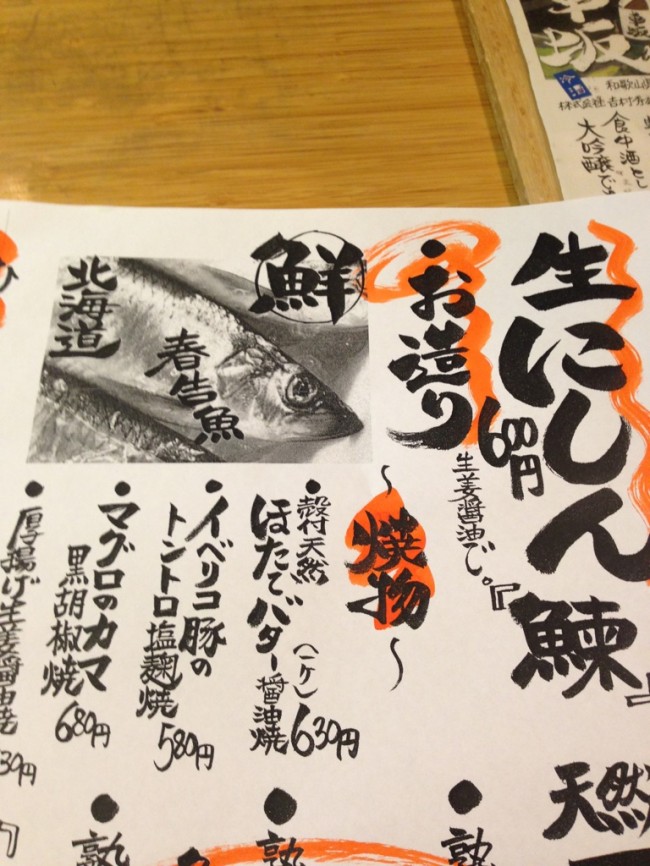 生にしん『鰊』
・お造り
600円
生姜醤油で。
鮮
北海道
春告魚
～焼物～
・殻付天然
ほたてバター醤油焼
(一ヶ) 630円
・イベリコ豚の
トントロ塩麹焼
580円
・マグロのカマ
黒胡椒焼
680円
・厚揚げ生姜醤油焼
30円
ひ
天然
・熟
・熟
・熟
和歌山
株式会社 吉村秀
食中酒とし
大吟醸で